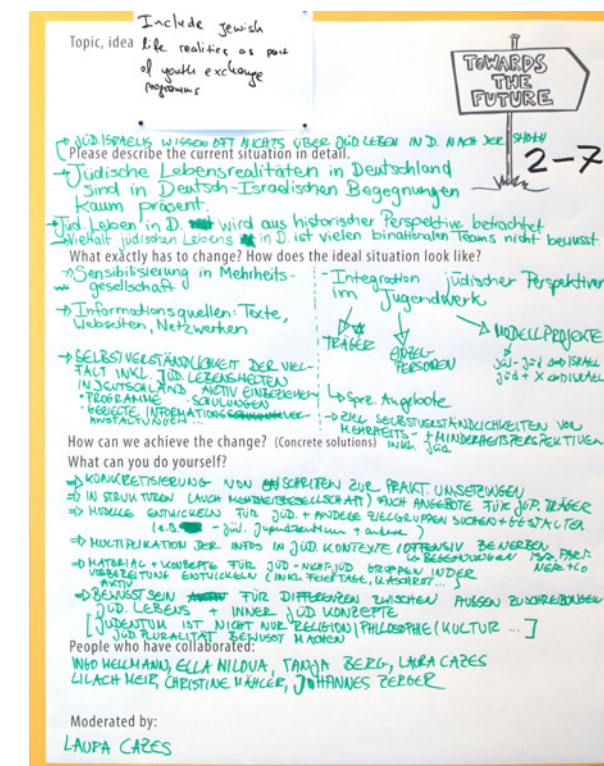 Topic, idea
Include Jewish
life realities as part
of youth exchange
programms
TOWARDS
THE
FUTURE
2-7
JÜD. ISRAELIS WISSEN OFT NICHTS ÜBER JÜD. LEBEN IN D. NACH DER SHOAH
Please describe the current situation in detail.
→ Jüdische Lebensrealitäten in Deutschland
sind in Deutsch-Israelischen Begegnungen
kaum präsent.
→ Jüd. Leben in D. wird aus historischer Perspektive betrachtet
→ Vielfalt jüdischen Lebens in D. ist vielen binationalen Teams nicht bewusst.
What exactly has to change? How does the ideal situation look like?
→ Sensibilisierung in Mehrheits-
gesellschaft
→ Informationsquellen: Texte,
Webseiten, Netzwerken
→ SELBSTVERSTÄNDLICHKEIT DER VIEL-
FALT INKL. JÜD. LEBENSWELTEN
IN DEUTSCHLAND AKTIV EINBEZIEHEN
• PROGRAMME • SCHULUNGEN
• GEZIELTE INFORMATIONS
ANSTALTUNGEN ...
- Integration jüdischer Perspektiven
im Jugendwerk
TRÄGER
EINZEL-
PERSONEN
MODELLPROJEKTE
jüd - jüd ISRAEL
jüd + X ISRAEL
↳ Spez. Angebote
→ ZIEL SELBSTVERSTÄNDLICHKEITEN VON
MEHRHEITS- + MINDERHEITSPERSPEKTIVEN
INKL. jüd
How can we achieve the change? (Concrete solutions)
What can you do yourself?
⇒ KONKRETISIERUNG VON SCHRITTEN ZUR PRAKT. UMSETZUNGEN
⇒ IN STRUKTUREN (AUCH MEHRHEITSGESELLSCHAFT) AUCH ANGEBOTE FÜR JÜD. TRÄGER
⇒ MODELLE ENTWICKELN FÜR JÜD. + ANDERE ZIELGRUPPEN SUCHEN + GESTALTEN
(z.B. - jüd. Jugendzentrum + andere)
⇒ MULTIPLIKATION DER INFOS IN JÜD. KONTEXTE / OFFENSIV BEWERBEN
↳ BEGEGNUNGEN ISR. PART-
NER + CO
⇒ MATERIAL + KONZEPTE FÜR JÜD - NICHT-JÜD GRUPPEN IN DER
VORBEREITUNG ENTWICKELN (INKL. FEIERTAGE, KASCHRUT ...)
AKTIV
⇒ BEWUSSTSEIN FÜR DIFFERENZEN ZWISCHEN AUSSEN ZUSCHREIBUNGEN
JÜD. LEBENS + INNER JÜD. KONZEPTE
[JUDENTUM IST NICHT NUR RELIGION / PHILOSOPHIE / KULTUR ...]
JÜD. PLURALITÄT BEWUSST MACHEN
People who have collaborated:
INGO HELLMANN, ELLA NILOVA, TANJA BERG, LAURA CAZES
LILACH MEIR, CHRISTINE MÄHLER, JOHANNES ZERGER
Moderated by:
LAURA CAZES